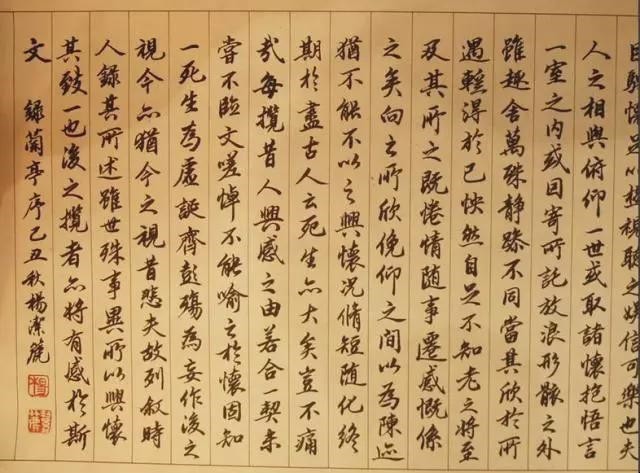 目騁懷足以極視聽之娱信可樂也夫
人之相與俯仰一世或取諸懷抱悟言
一室之内或因寄所託放浪形骸之外
雖趣舍萬殊静躁不同當其欣於所
遇輕得於己怏然自足不知老之將至
及其所之既惓情随事遷感慨係
之矣向之所欣俛仰之間以為陳迹
猶不能不以之興懷況脩短随化終
期於盡古人云死生亦大矣豈不痛
哉每攬昔人興感之由若合一契未
嘗不臨文嗟悼不能喻之於懷固知
一死生為虚誕齊彭殤為妄作後之
視今亦猶今之視昔悲夫故列叙時
人録其所述雖世殊事異所以興懷
其致一也後之攬者亦將有感於斯
文 録蘭亭序己丑秋楊潔麗